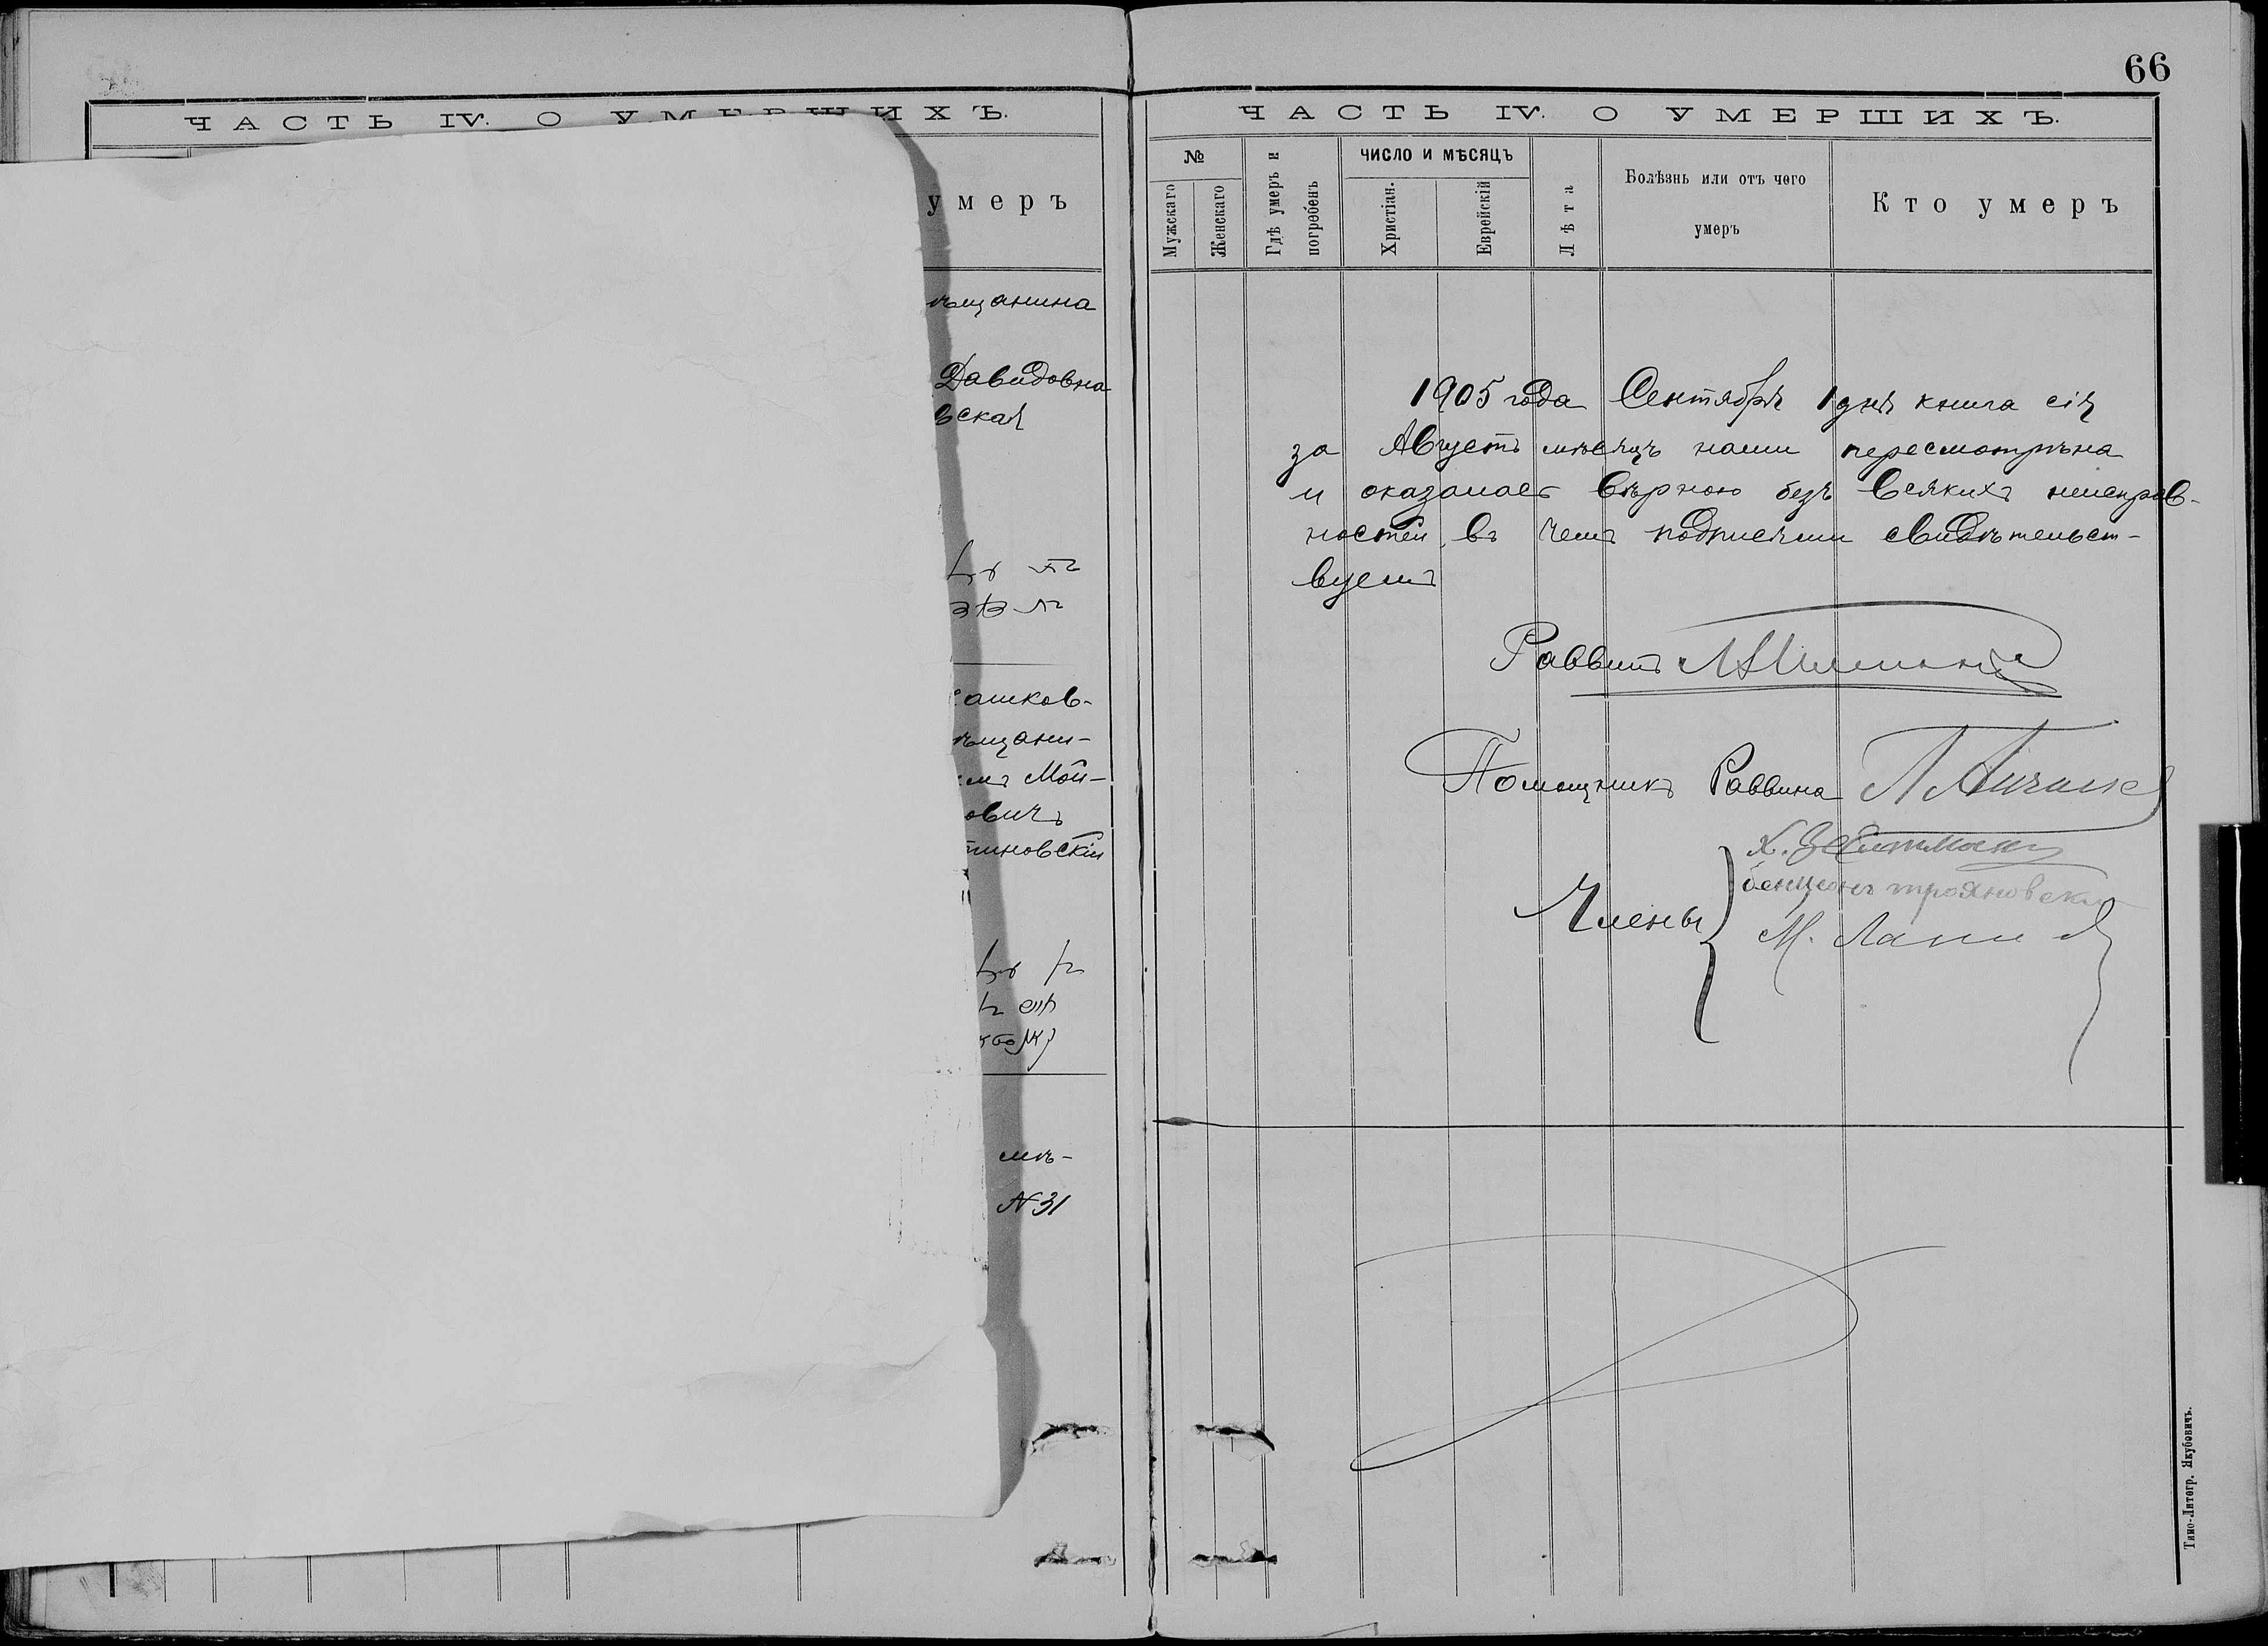 ЧАСТЬ IV. О УМЕРШИХЪ.
умеръ
ѣщанина
Давидовна
вская
ашков-
ѣщани-
Мой-
овичъ
тиновскій
мѣ-
№ 31
66
ЧАСТЬ IV. О УМЕРШИХЪ.
№
Мужскаго
Женскаго
Гдѣ умеръ и погребенъ
ЧИСЛО И МѢСЯЦЪ
Христіан.
Еврейскій
Лѣта
Болѣзнь или отъ чего
умеръ
Кто умеръ
1905 года Сентября 1 дня книга сія
за Августъ мѣсяцъ нами пересмотрѣна
и оказалась вѣрною безъ всякихъ неисправ-
ностей, въ чемъ подписями свидѣтельст-
вуемъ
Раввинъ
Помощникъ Раввина
Члены
бенцеонъ трояновски
М.
Типо-Литогр. Якубовичъ.